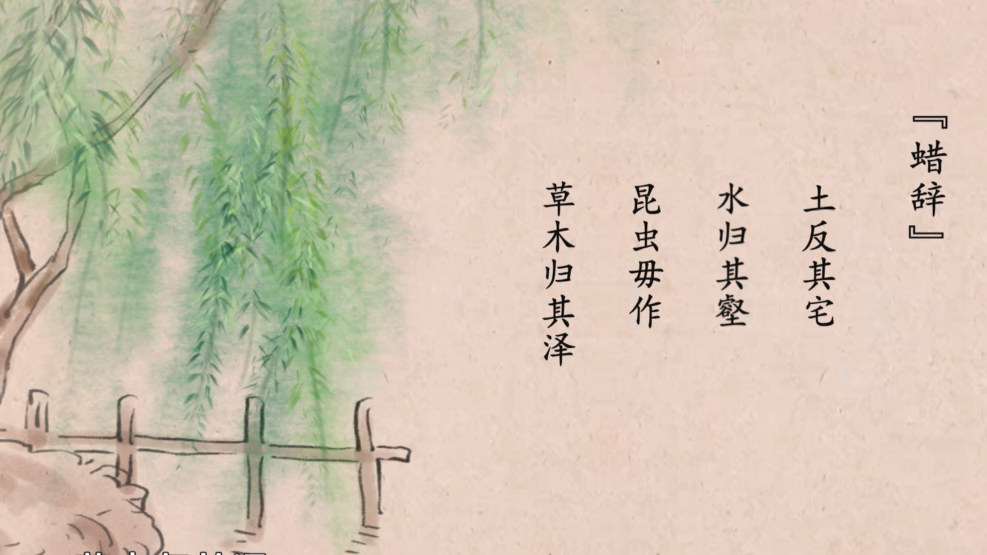 『蜡辞』
土反其宅
水归其壑
昆虫毋作
草木归其泽